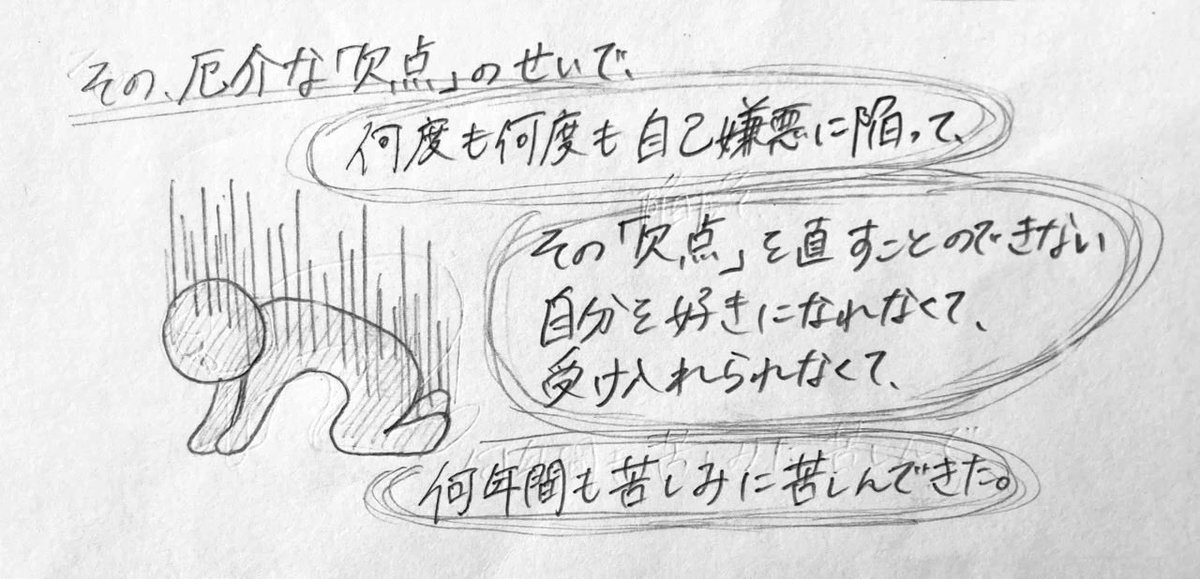 その、厄介な「欠点」のせいで、
何度も何度も自己嫌悪に陥って、
その「欠点」を直すことのできない
自分を好きになれなくて、
受け入れられなくて、
何年間も苦しみに苦しんできた。